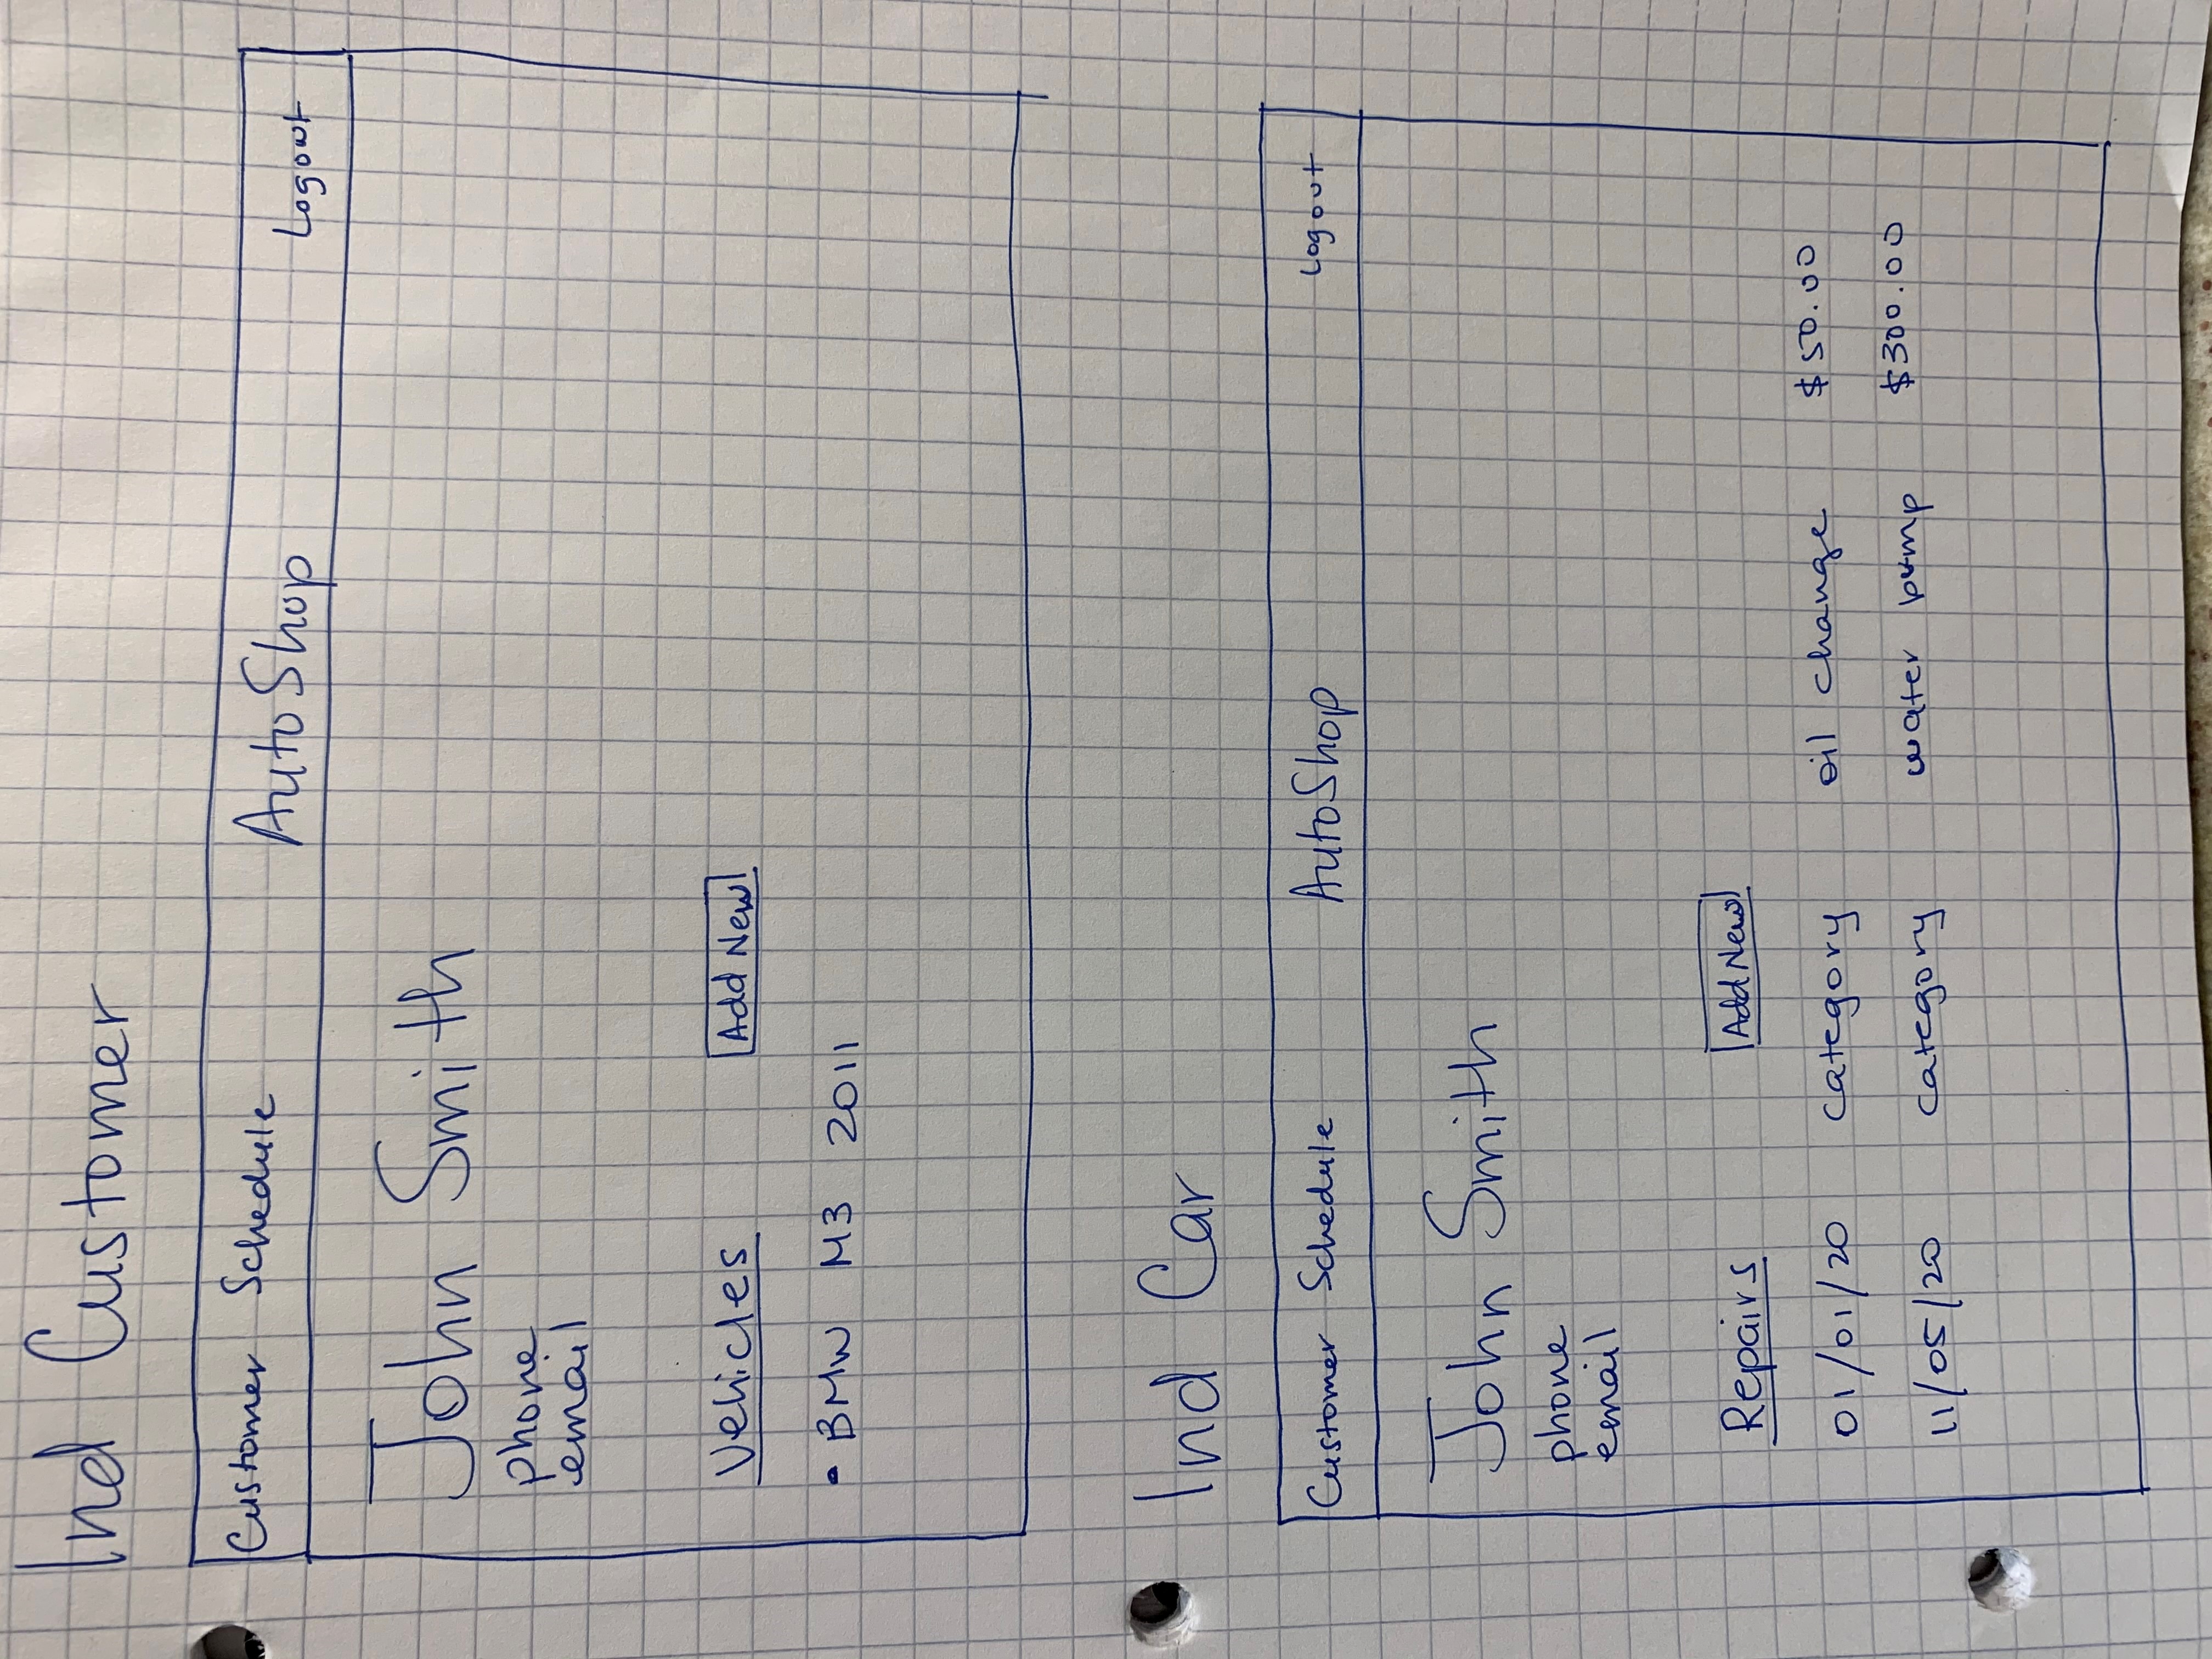 Ind Customer
Customer Schedule AutoShop Logout
John Smith
phone
email
Vehicles Add New
• BMW M3 2011
Ind Car
Customer Schedule AutoShop Logout
John Smith
phone
email
Repairs Add New
01/01/20 category oil change $50.00
11/05/20 category water pump $300.00